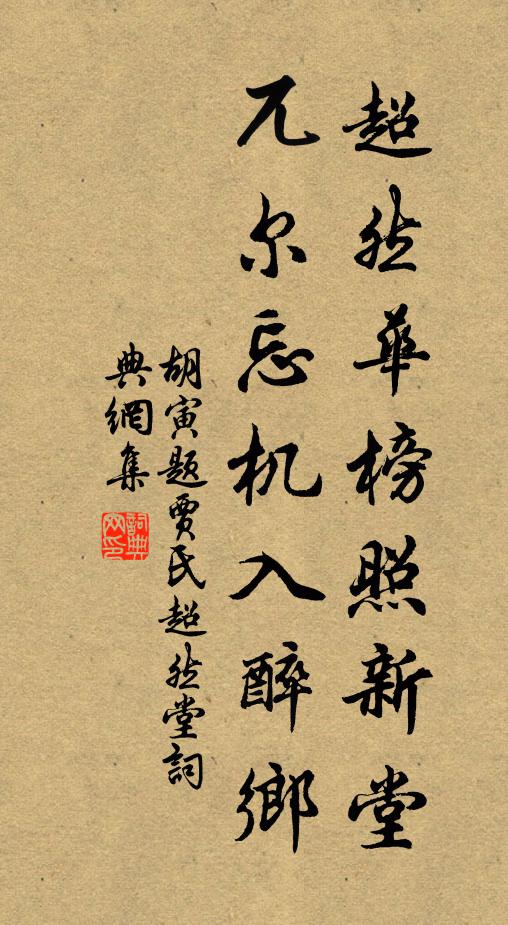 超然華榜照新堂
兀尔忘机入醉鄉
胡寅題賈氏超然堂詞
典網集
詞典網印